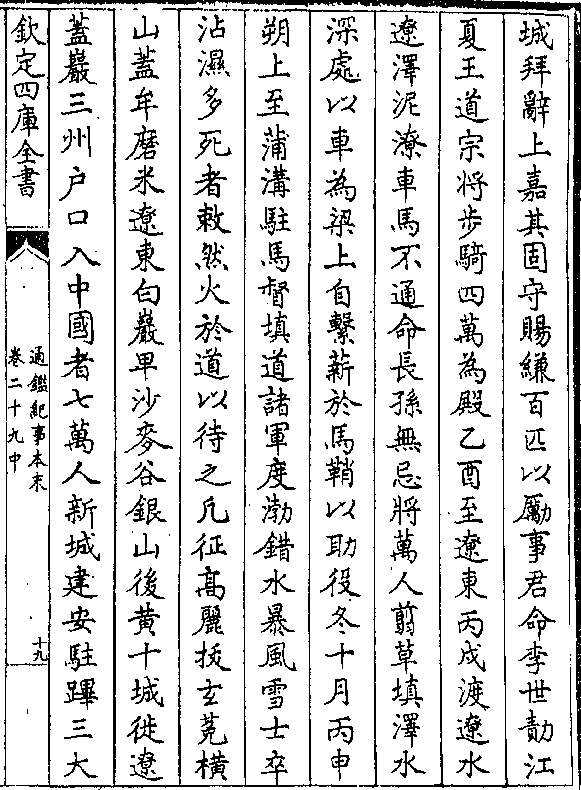 城拜辭上嘉其固守賜縑百匹以勵事君命李世勣江
夏王道宗将步騎四萬為殿乙酉至遼東丙戍渡遼水
遼澤泥潦車馬不通命長孫無忌將萬人翦草填澤水
深處以車為梁上自繫薪於馬鞘以助役冬十月丙申
朔上至蒲溝駐馬督填道諸軍度渤錯水暴風雪士卒
沾濕多死者敕然火於道以待之凡征髙麗拔玄菟橫
山蓋牟磨米遼東白巖卑沙麥谷銀山後黄十城徙遼
蓋巖三州户口入中國者七萬人新城建安駐蹕三大
欽定四庫全書
通鑑紀事本末
卷二十九中
十九